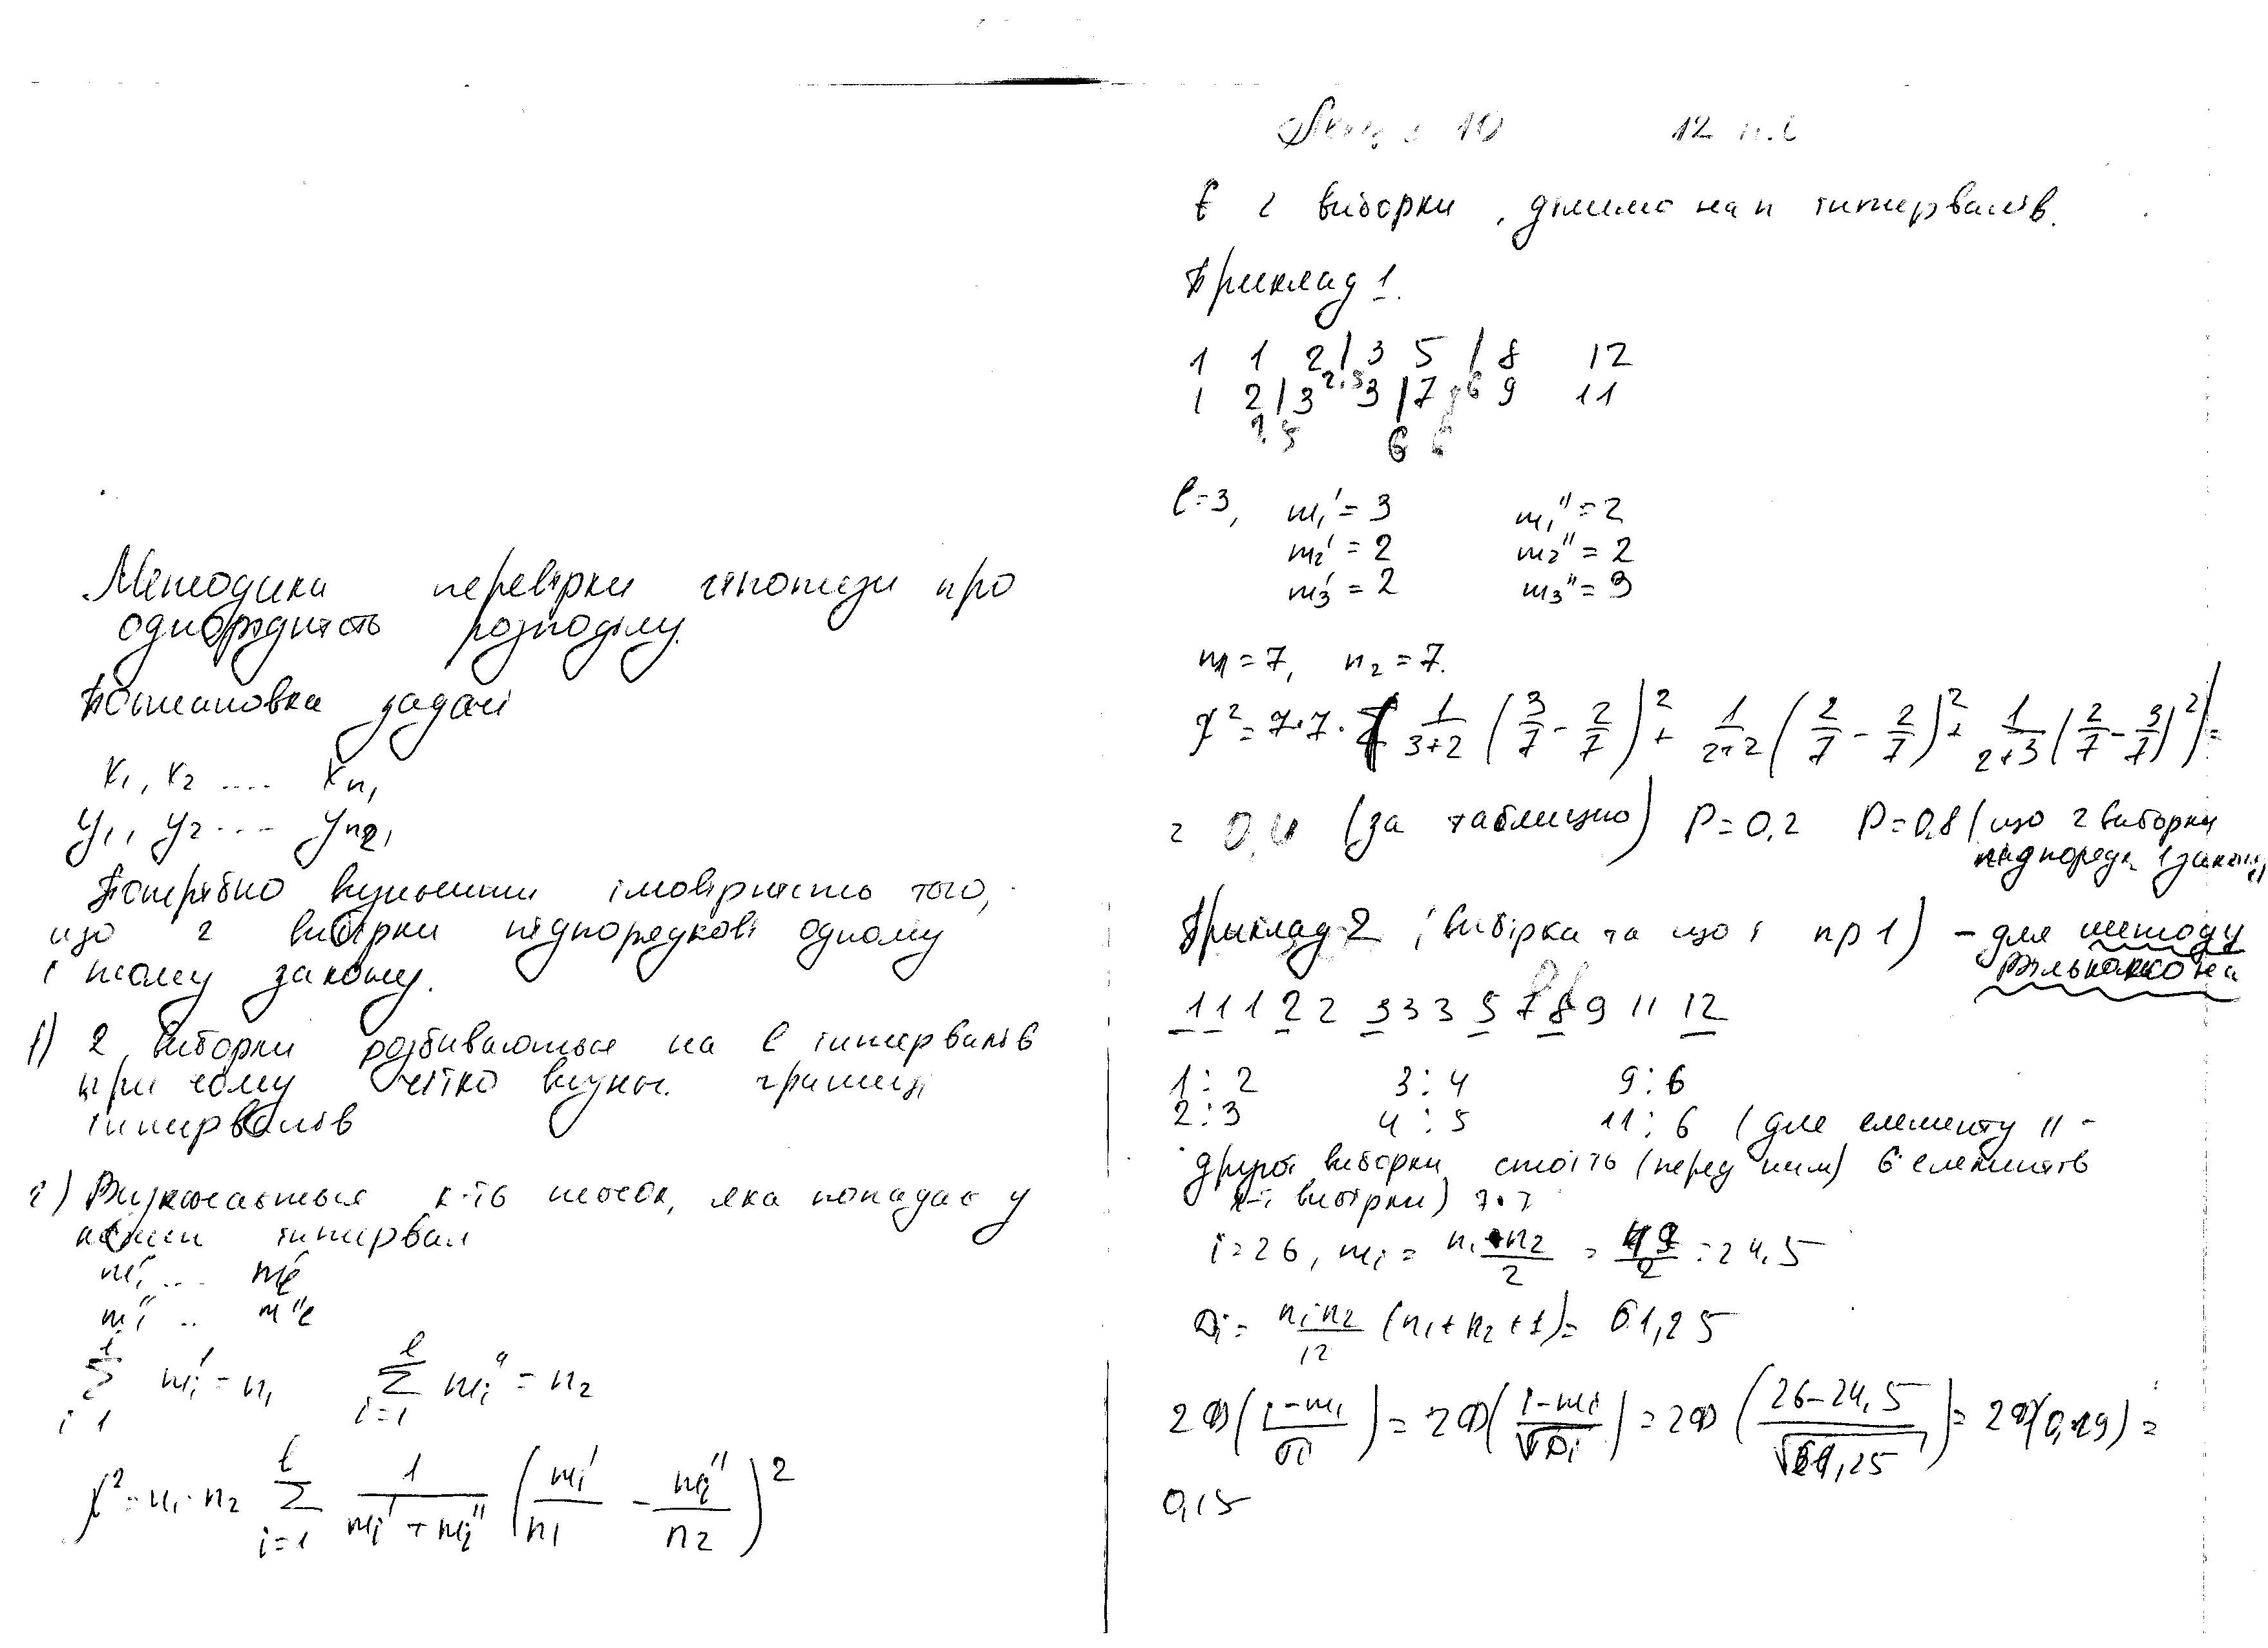 Методика перевірки гіпотези про
однорідність розподілу.
Постановка задачі
x₁, x₂ .... xₙ₁
y₁, y₂ ... yₙ₂,
Потрібно визначити імовірність того,
що 2 вибірки підпорядкові одному
і тому закону.
1) 2 виборки розбиваються на l інтервалів
при чому чітко визнач. границі
інтервалів
2) Визначається к-ть точок, яка попадає у
кожен інтервал
m₁' ... mₗ'
m₁'' .. m''ₗ
∑ᵢ₌₁ˡ mᵢ' = n₁ ∑ᵢ₌₁ˡ mᵢ'' = n₂
χ² = n₁·n₂ ∑ᵢ₌₁ˡ 1/(mᵢ' + mᵢ'') (mᵢ'/n₁ - mᵢ''/n₂)²
10 12
Є 2 виборки, ділимо на n інтервалів.
Приклад 1.
1 1 2 / 3 5 / 8 12
2,5 6
1 2 / 3 3 / 7 9 11
6
l=3, m₁' = 3 m₁'' = 2
m₂' = 2 m₂'' = 2
m₃' = 2 m₃'' = 3
n₁ = 7, n₂ = 7.
χ² = 7·7·(1/(3+2) (3/7 - 2/7)² + 1/(2+2) (2/7 - 2/7)² + 1/(2+3) (2/7 - 3/7)²) =
= 0,4 (за таблицею) P=0,2 P=0,8 (що 2 виборки
підпорядк. 1 закону)
Приклад 2 (вибірка та що і пр 1) - для методу
Вількоксона
1 1 1 2 2 3 3 3 5 7 8 9 11 12
1 : 2 3 : 4 9 : 6
2 : 3 4 : 5 11 : 6 (для елементу 11 -
другої виборки стоїть (перед ним) 6 елементів
вибірки) 7·7
i = 26, mᵢ = n₁·n₂/2 = 49/2 = 24,5
Dᵢ = n₁n₂/12 (n₁+n₂+1) = 61,25
2Ф((i-mᵢ)/σᵢ) = 2Ф((i-mᵢ)/√Dᵢ) = 2Ф((26-24,5)/√61,25) = 2Ф(0,19) =
0,15